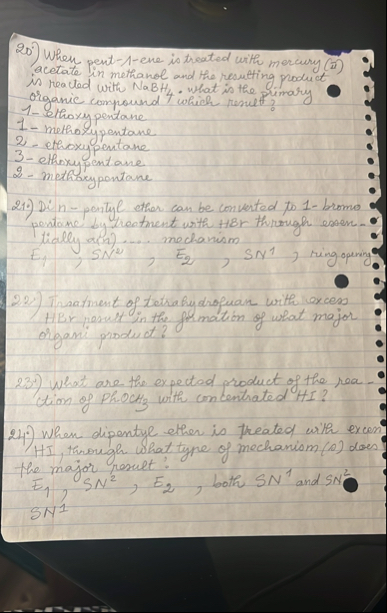 20°) When pent-1-ene is treated with mercury (II)
acetate in methanol and the resulting product
is reacted with NaBH4. what is the primary
organic compound which result?
1- ethoxypentane
1- methoxypentane
2- ethoxypentane
3- ethoxypentane
2- methoxypentane
21°) Di n-pentyl ether can be converted to 1-bromo
pentane by treatment with HBr through essen-
tially a(n) .... mechanism
E1 , SN2 , E2 , SN1 , ring opening
22°) Treatment of tetrahydrofuan with excess
HBr result in the formation of what major
organi product?
23°) What are the expected product of the rea-
ction of PhOCH3 with concentrated HI?
24°) When dipentyl ether is treated with excen
HI, through what type of mechanism(s) does
the major result?
E1 , SN2 , E2 , both SN1 and SN2
SN1